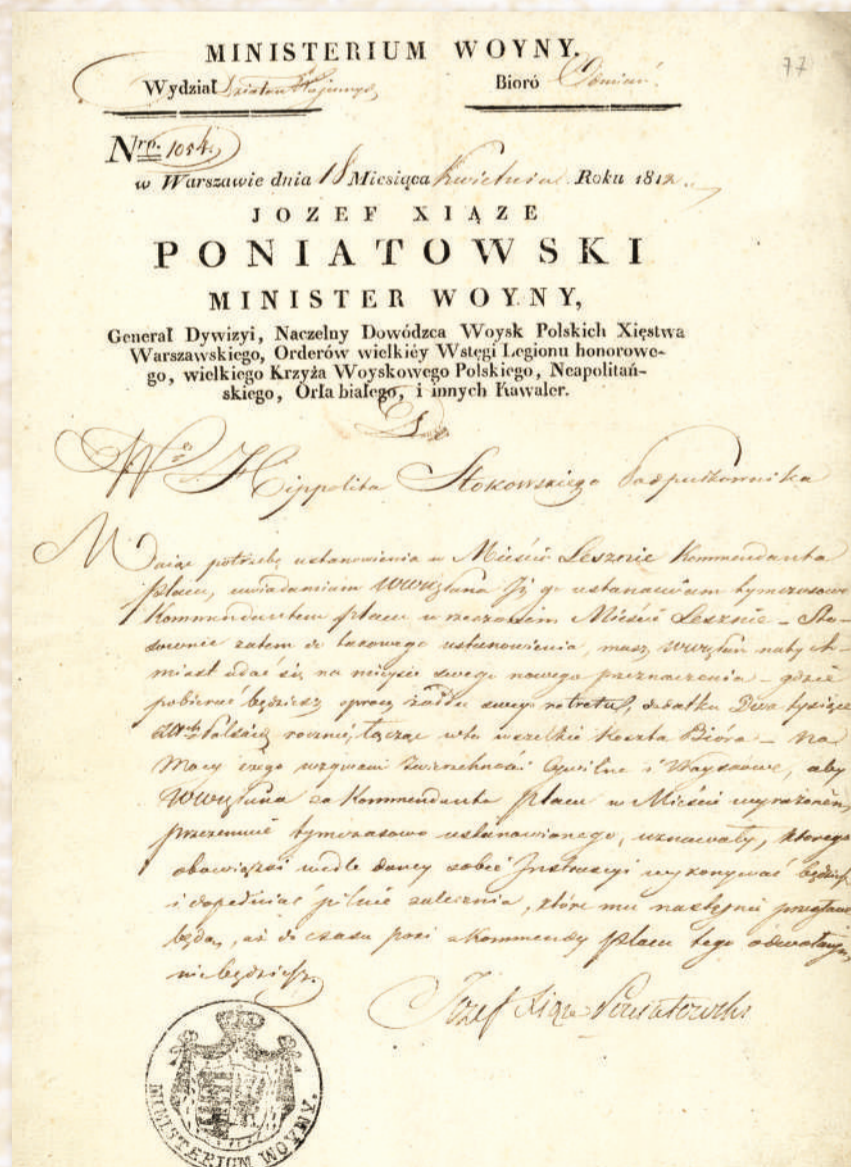 77
MINISTERIUM WOYNY.
Wydział Działań Wojennych Bióró
Nro. 1054.
w Warszawie dnia 18 Miesiąca Kwietnia Roku 1812.
JOZEF XIĄZE
PONIATOWSKI
MINISTER WOYNY,
Generał Dywizyi, Naczelny Dowódzca Woysk Polskich Xięstwa
Warszawskiego, Orderów wielkiéy Wstęgi Legionu honorowe-
go, wielkiego Krzyża Woyskowego Polskiego, Neapolitań-
skiego, Orła białego, i innych Kawaler.
Do
W° Hippolita Stokowskiego Podpułkownika
potrzebę ustanowienia w Mieście Lesznie Kommendanta
placu, uwiadamiam WWPana Iż go ustanawiam tymczasowo
Kommendantem placu w rzeczonem Mieście Lesznie – Sto-
sownie zatem do takowego ustanowienia, masz WWPan natych-
miast udać się na mieysce swego nowego przeznaczenia – gdzie
pobierać będziesz oprócz żołdu swego dodatku Dwa tysiące
Polskich rocznie, łącząc w to wszelkie Koszta Bióra – Na
Mocy czego wzywam Zwierzchności Cywilne i Woyskowe, aby
WWPana za Kommendanta placu w Mieście wyrażonem,
przezemnie tymczasowo ustanowionego, uznawały, którego
obowiązki wedle daney sobie Instrukcyi wykonywać będziesz
i dopełniać pilnie zalecenia, które mu następnie przysłane
będą, aż do czasu poki z Kommendy placu tego odwołanym
nie będziesz.
Józef Xiąże Poniatowski
MINISTERIUM WOYNY.